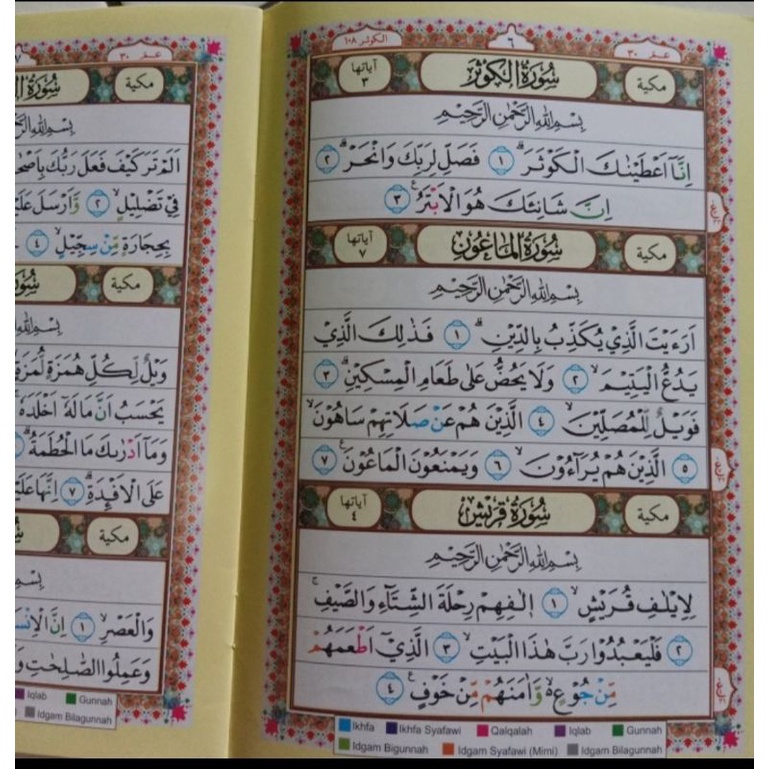 عم ٣٠
٦
الكوثر ١٠٨
مكية
سُورَةُ الْكَوْثَرِ
آياتها ٣
بِسْمِ اللهِ الرَّحْمٰنِ الرَّحِيْمِ
اِنَّآ اَعْطَيْنٰكَ الْكَوْثَرَۗ ١ فَصَلِّ لِرَبِّكَ وَانْحَرْۗ ٢
اِنَّ شَانِئَكَ هُوَ الْاَبْتَرُ ࣖ ٣
مكية
سُورَةُ الْمَاعُونِ
آياتها ٧
بِسْمِ اللهِ الرَّحْمٰنِ الرَّحِيْمِ
اَرَءَيْتَ الَّذِيْ يُكَذِّبُ بِالدِّيْنِۗ ١ فَذٰلِكَ الَّذِيْ
يَدُعُّ الْيَتِيْمَۙ ٢ وَلَا يَحُضُّ عَلٰى طَعَامِ الْمِسْكِيْنِۗ ٣
فَوَيْلٌ لِّلْمُصَلِّيْنَۙ ٤ الَّذِيْنَ هُمْ عَنْ صَلَاتِهِمْ سَاهُوْنَۙ
٥ الَّذِيْنَ هُمْ يُرَآءُوْنَۙ ٦ وَيَمْنَعُوْنَ الْمَاعُوْنَ ࣖ ٧
مكية
سُورَةُ قُرَيْشٍ
آياتها ٤
بِسْمِ اللهِ الرَّحْمٰنِ الرَّحِيْمِ
لِاِيْلٰفِ قُرَيْشٍۙ ١ اٖلٰفِهِمْ رِحْلَةَ الشِّتَآءِ وَالصَّيْفِۚ
٢ فَلْيَعْبُدُوْا رَبَّ هٰذَا الْبَيْتِۙ ٣ الَّذِيْٓ اَطْعَمَهُمْ
مِّنْ جُوْعٍ ەۙ وَّاٰمَنَهُمْ مِّنْ خَوْفٍ ࣖ ٤
Ikhfa Ikhfa Syafawi Qalqalah Iqlab Gunnah
Idgam Bigunnah Idgam Syafawi (Mimi) Idgam Bilagunnah
عم ٣٠
مكية
سُورَةُ
بِسْمِ اللهِ
اَلَمْ تَرَ كَيْفَ فَعَلَ رَبُّكَ
فِيْ تَضْلِيْلٍۙ ٢ وَّاَرْسَلَ
بِحِجَارَةٍ مِّنْ سِجِّيْلٍۙ ٤
مكية
بِسْمِ اللهِ
وَيْلٌ لِّكُلِّ هُمَزَةٍ لُّمَزَةٍ
يَحْسَبُ اَنَّ مَالَهٗٓ اَخْلَدَهٗ
وَمَآ اَدْرٰىكَ مَا الْحُطَمَةُۗ
عَلَى الْاَفْـِٕدَةِۗ ٧ اِنَّهَا
مكية
بِسْمِ
وَالْعَصْرِۙ ١ اِنَّ
وَعَمِلُوا الصّٰلِحٰتِ
Iqlab Gunnah
Idgam Bilagunnah